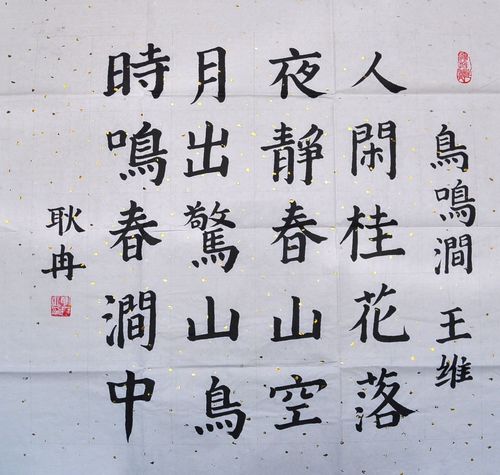 鳥鳴澗 王维
人閑桂花落
夜靜春山空
月出驚山鳥
時鳴春澗中
耿冉